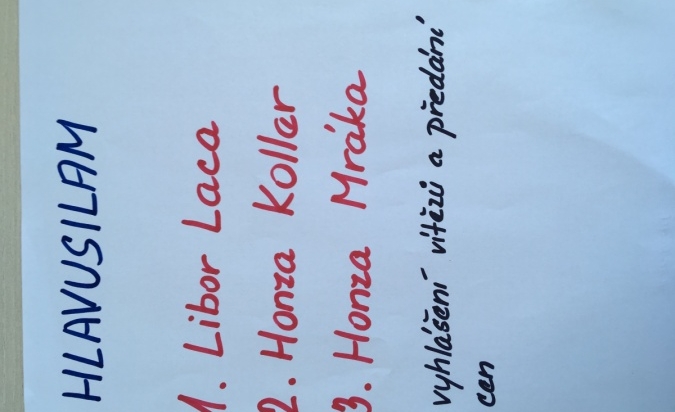 HLAVUSILAM
1. Libor Laca
2. Honza Koller
3. Honza Mráka
vyhlášení vítězů a předání
cen